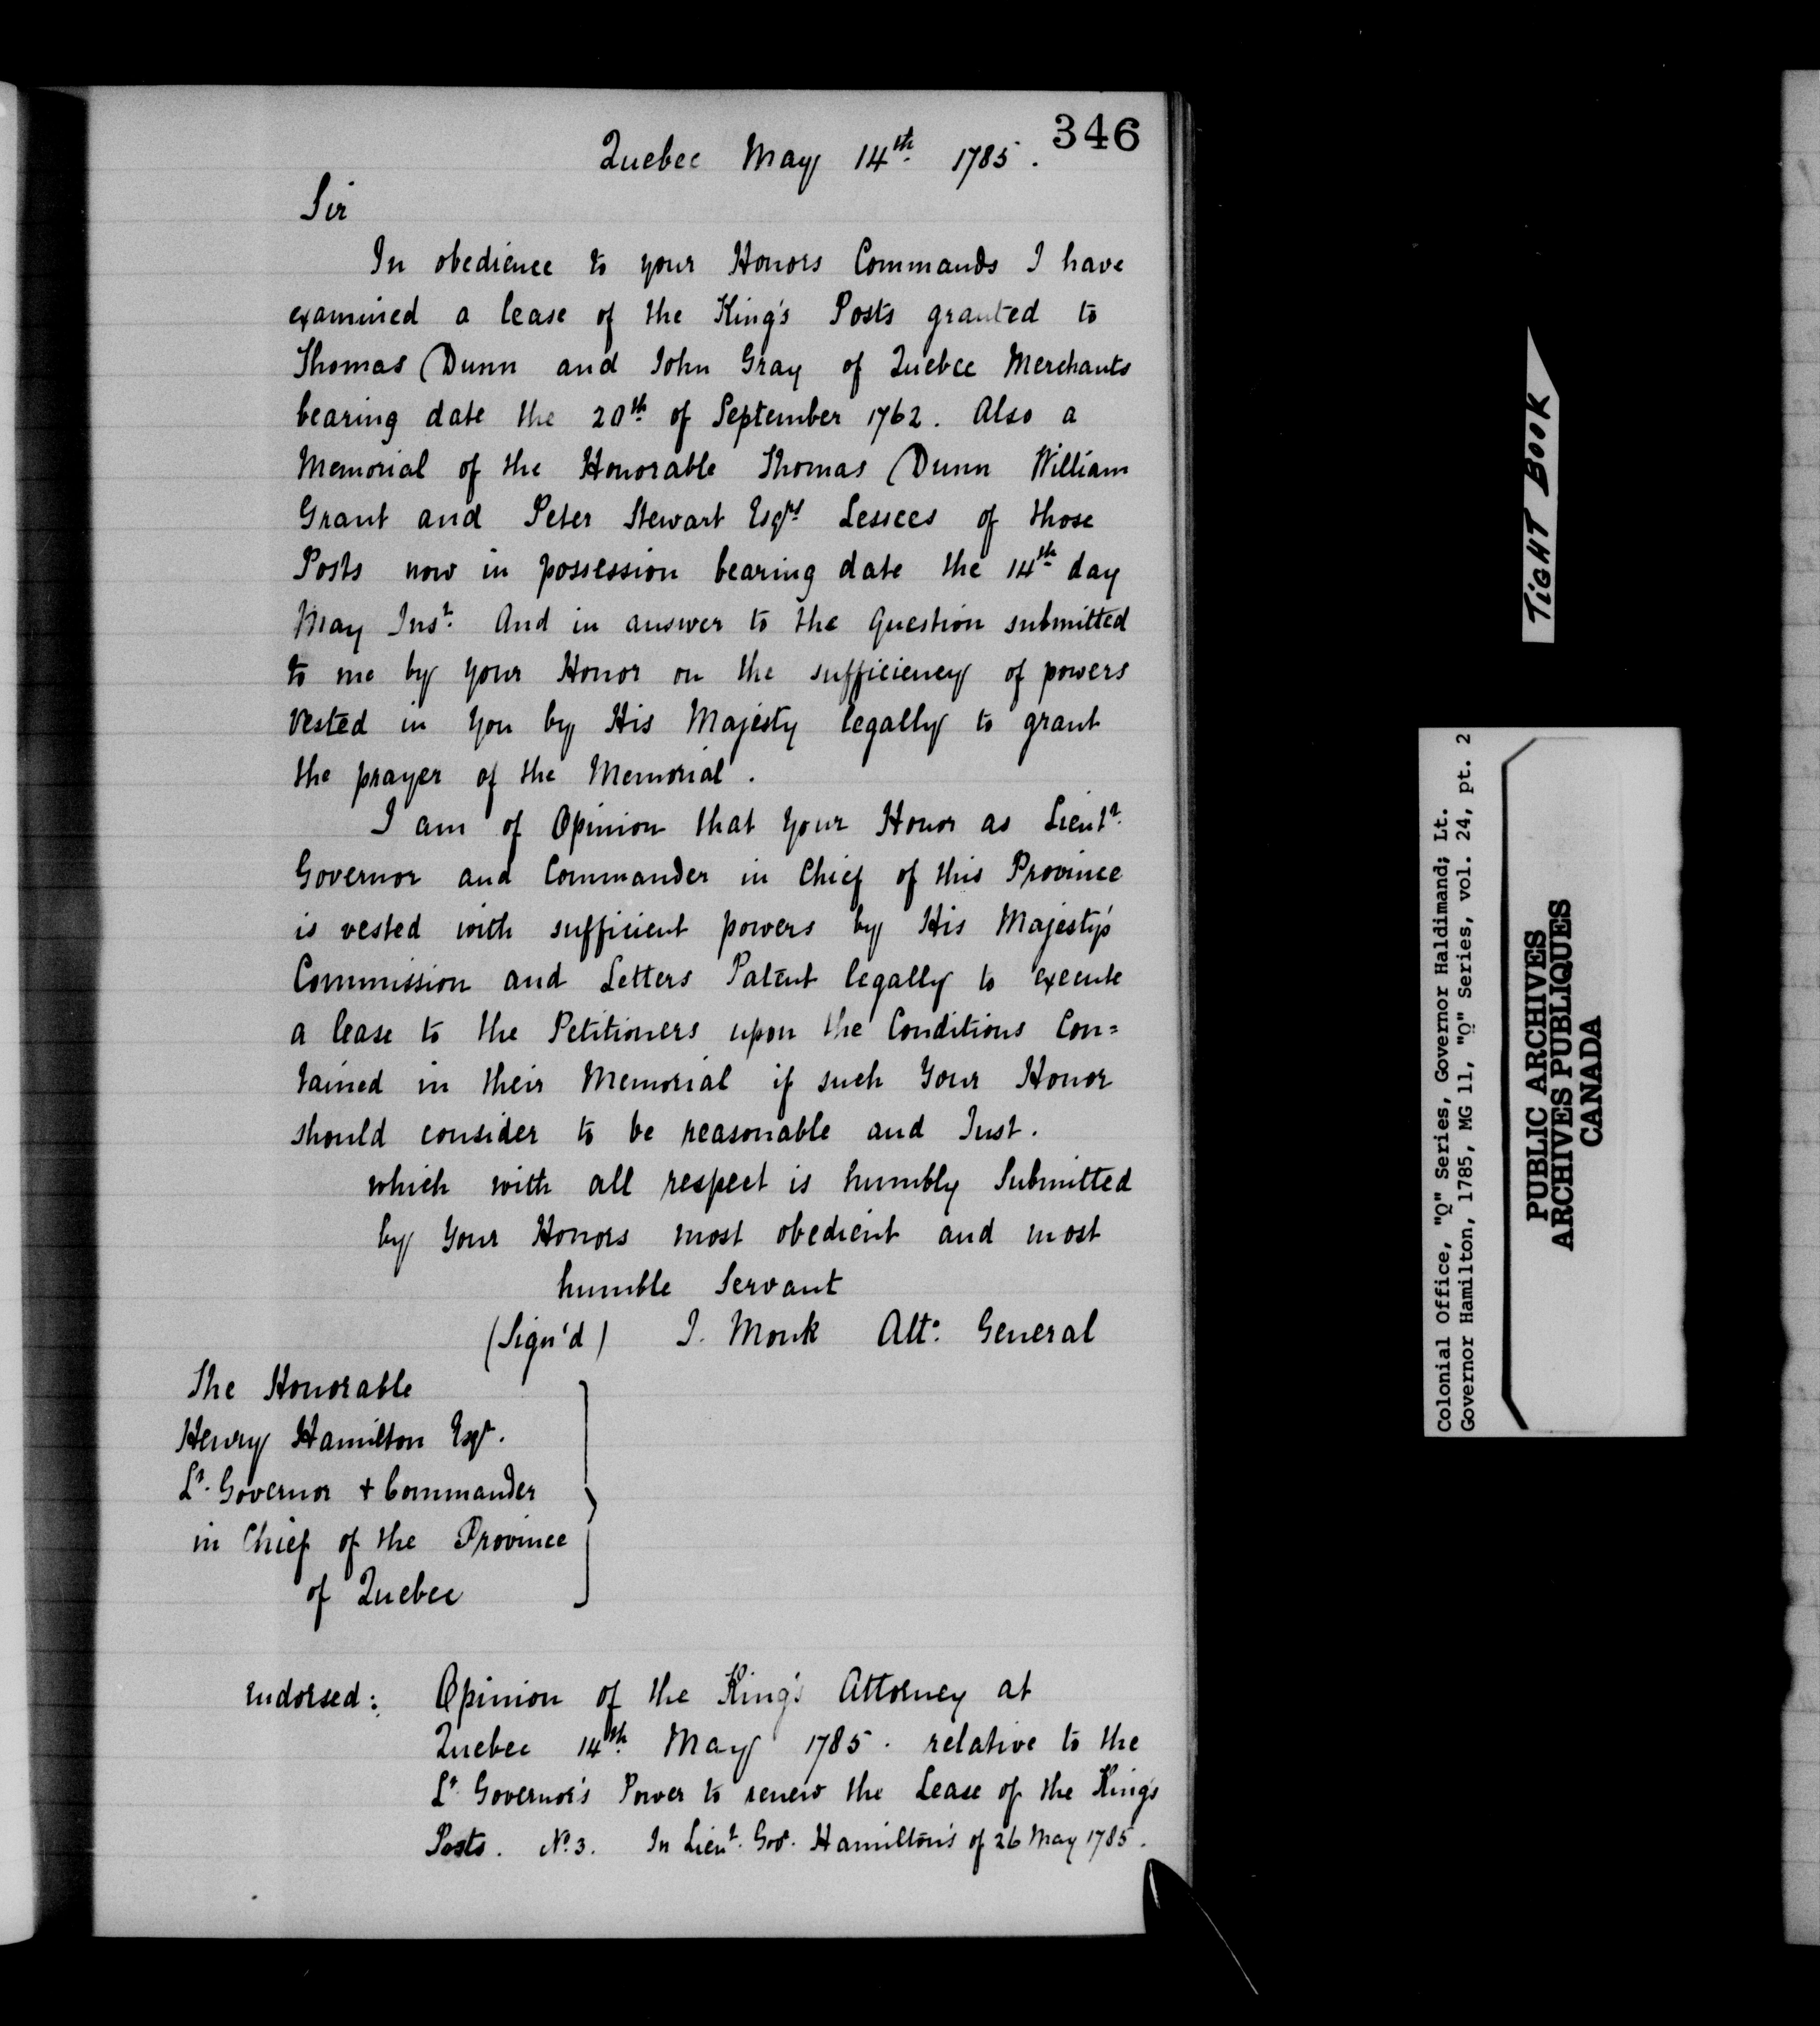 346
Quebec May 14th 1785.
Sir
In obedience to your Honors Commands I have
examined a lease of the King's Posts granted to
Thomas Dunn and John Gray of Quebec Merchants
bearing date the 20th of September 1762. Also a
Memorial of the Honorable Thomas Dunn William
Grant and Peter Stewart Esqrs Lessees of those
Posts now in possession bearing date the 14th day
May Inst. And in answer to the Question submitted
to me by your Honor on the sufficiency of powers
vested in you by His Majesty legally to grant
the prayer of the Memorial.
I am of Opinion that your Honor as Lieut.
Governor and Commander in Chief of this Province
is vested with sufficient powers by His Majesty's
Commission and Letters Patent legally to execute
a lease to the Petitioners upon the Conditions Con=
tained in their Memorial if such Your Honor
should consider to be reasonable and Just.
which with all respect is humbly Submitted
by Your Honors most obedient and most
humble Servant
(Sign'd) J. Monk Atto. General
The Honorable
Henry Hamilton Esqr.
Lt. Governor + Commander
in Chief of the Province
of Quebec
endorsed: Opinion of the King's Attorney at
Quebec 14th May 1785. relative to the
Lt. Governor's Power to renew the Lease of the King's
Posts. No. 3. In Lieut. Govr. Hamilton's of 26 May 1785.
TIGHT BOOK
Colonial Office, "Q" Series, Governor Haldimand; Lt.
Governor Hamilton, 1785, MG 11, "Q" Series, vol. 24, pt. 2
PUBLIC ARCHIVES
ARCHIVES PUBLIQUES
CANADA